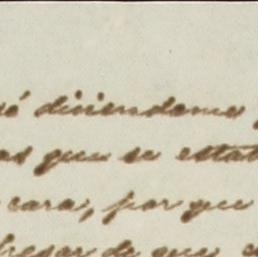 só diciendome
as que se estab
cara, por que
de que